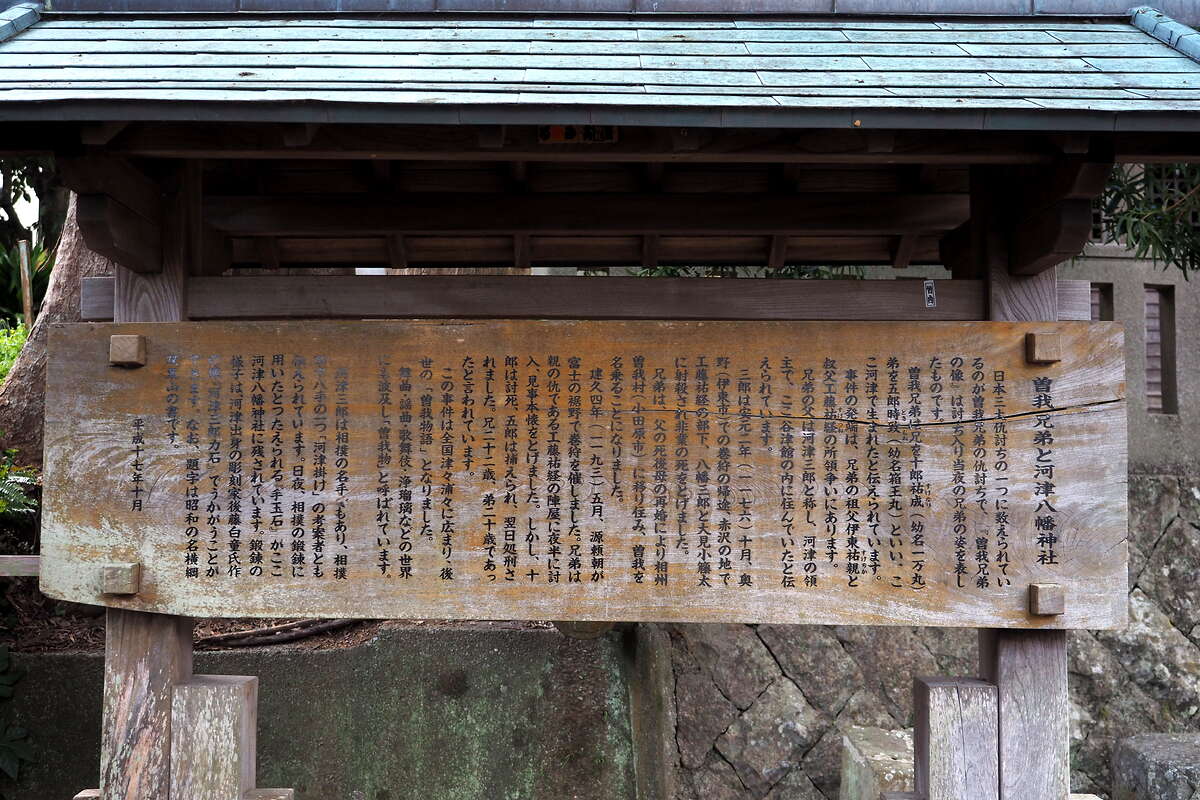 曽我兄弟と河津八幡神社
日本三大仇討ちの一つに数えられてい
るのが曽我兄弟の仇討ちで、「曽我兄弟
の像」は討ち入り当夜の兄弟の姿を表し
たものです。
曽我兄弟は兄を十郎祐成(幼名一万丸)
弟を五郎時致(幼名箱王丸)といい、こ
こ河津で生まれたと伝えられています。
事件の発端は、兄弟の祖父伊東祐親と
叔父工藤祐経の所領争いにあります。
兄弟の父は河津三郎と称し、河津の領
主で、ここ谷津館の内に住んでいたと伝
えられています。
三郎は安元二年(一一七六)十月、奥
野(伊東市)での巻狩の帰途、赤沢の地で
工藤祐経の部下、八幡三郎と大見小籐太
に射殺され非業の死をとげました。
兄弟は、父の死後母の再婚により相州
曽我村(小田原市)に移り住み、曽我を
名乗ることになりました。
建久四年(一一九三)五月、源頼朝が
富士の裾野で巻狩を催しました。兄弟は
親の仇である工藤祐経の陣屋に夜半に討
入、見事本懐をとげました。しかし、十
郎は討死、五郎は捕えられ、翌日処刑さ
れました。兄二十二歳、弟二十歳であっ
たと言われています。
この事件は全国津々浦々に広まり、後
世の「曽我物語」となりました。
舞曲・謡曲・歌舞伎・浄瑠璃などの世界
にも波及し「曽我物」と呼ばれています。
河津三郎は相撲の名手でもあり、相撲
四十八手の一つ「河津掛け」の考案者とも
伝えられています。日夜、相撲の鍛錬に
用いたとつたえられる「手玉石」がここ
河津八幡神社に残されています。鍛錬の
様子は、河津出身の彫刻家後藤白童氏作
の像「河津三郎力石」でうかがうことが
できます。なお、題字は昭和の名横綱
双葉山の書です。
平成十七年十月